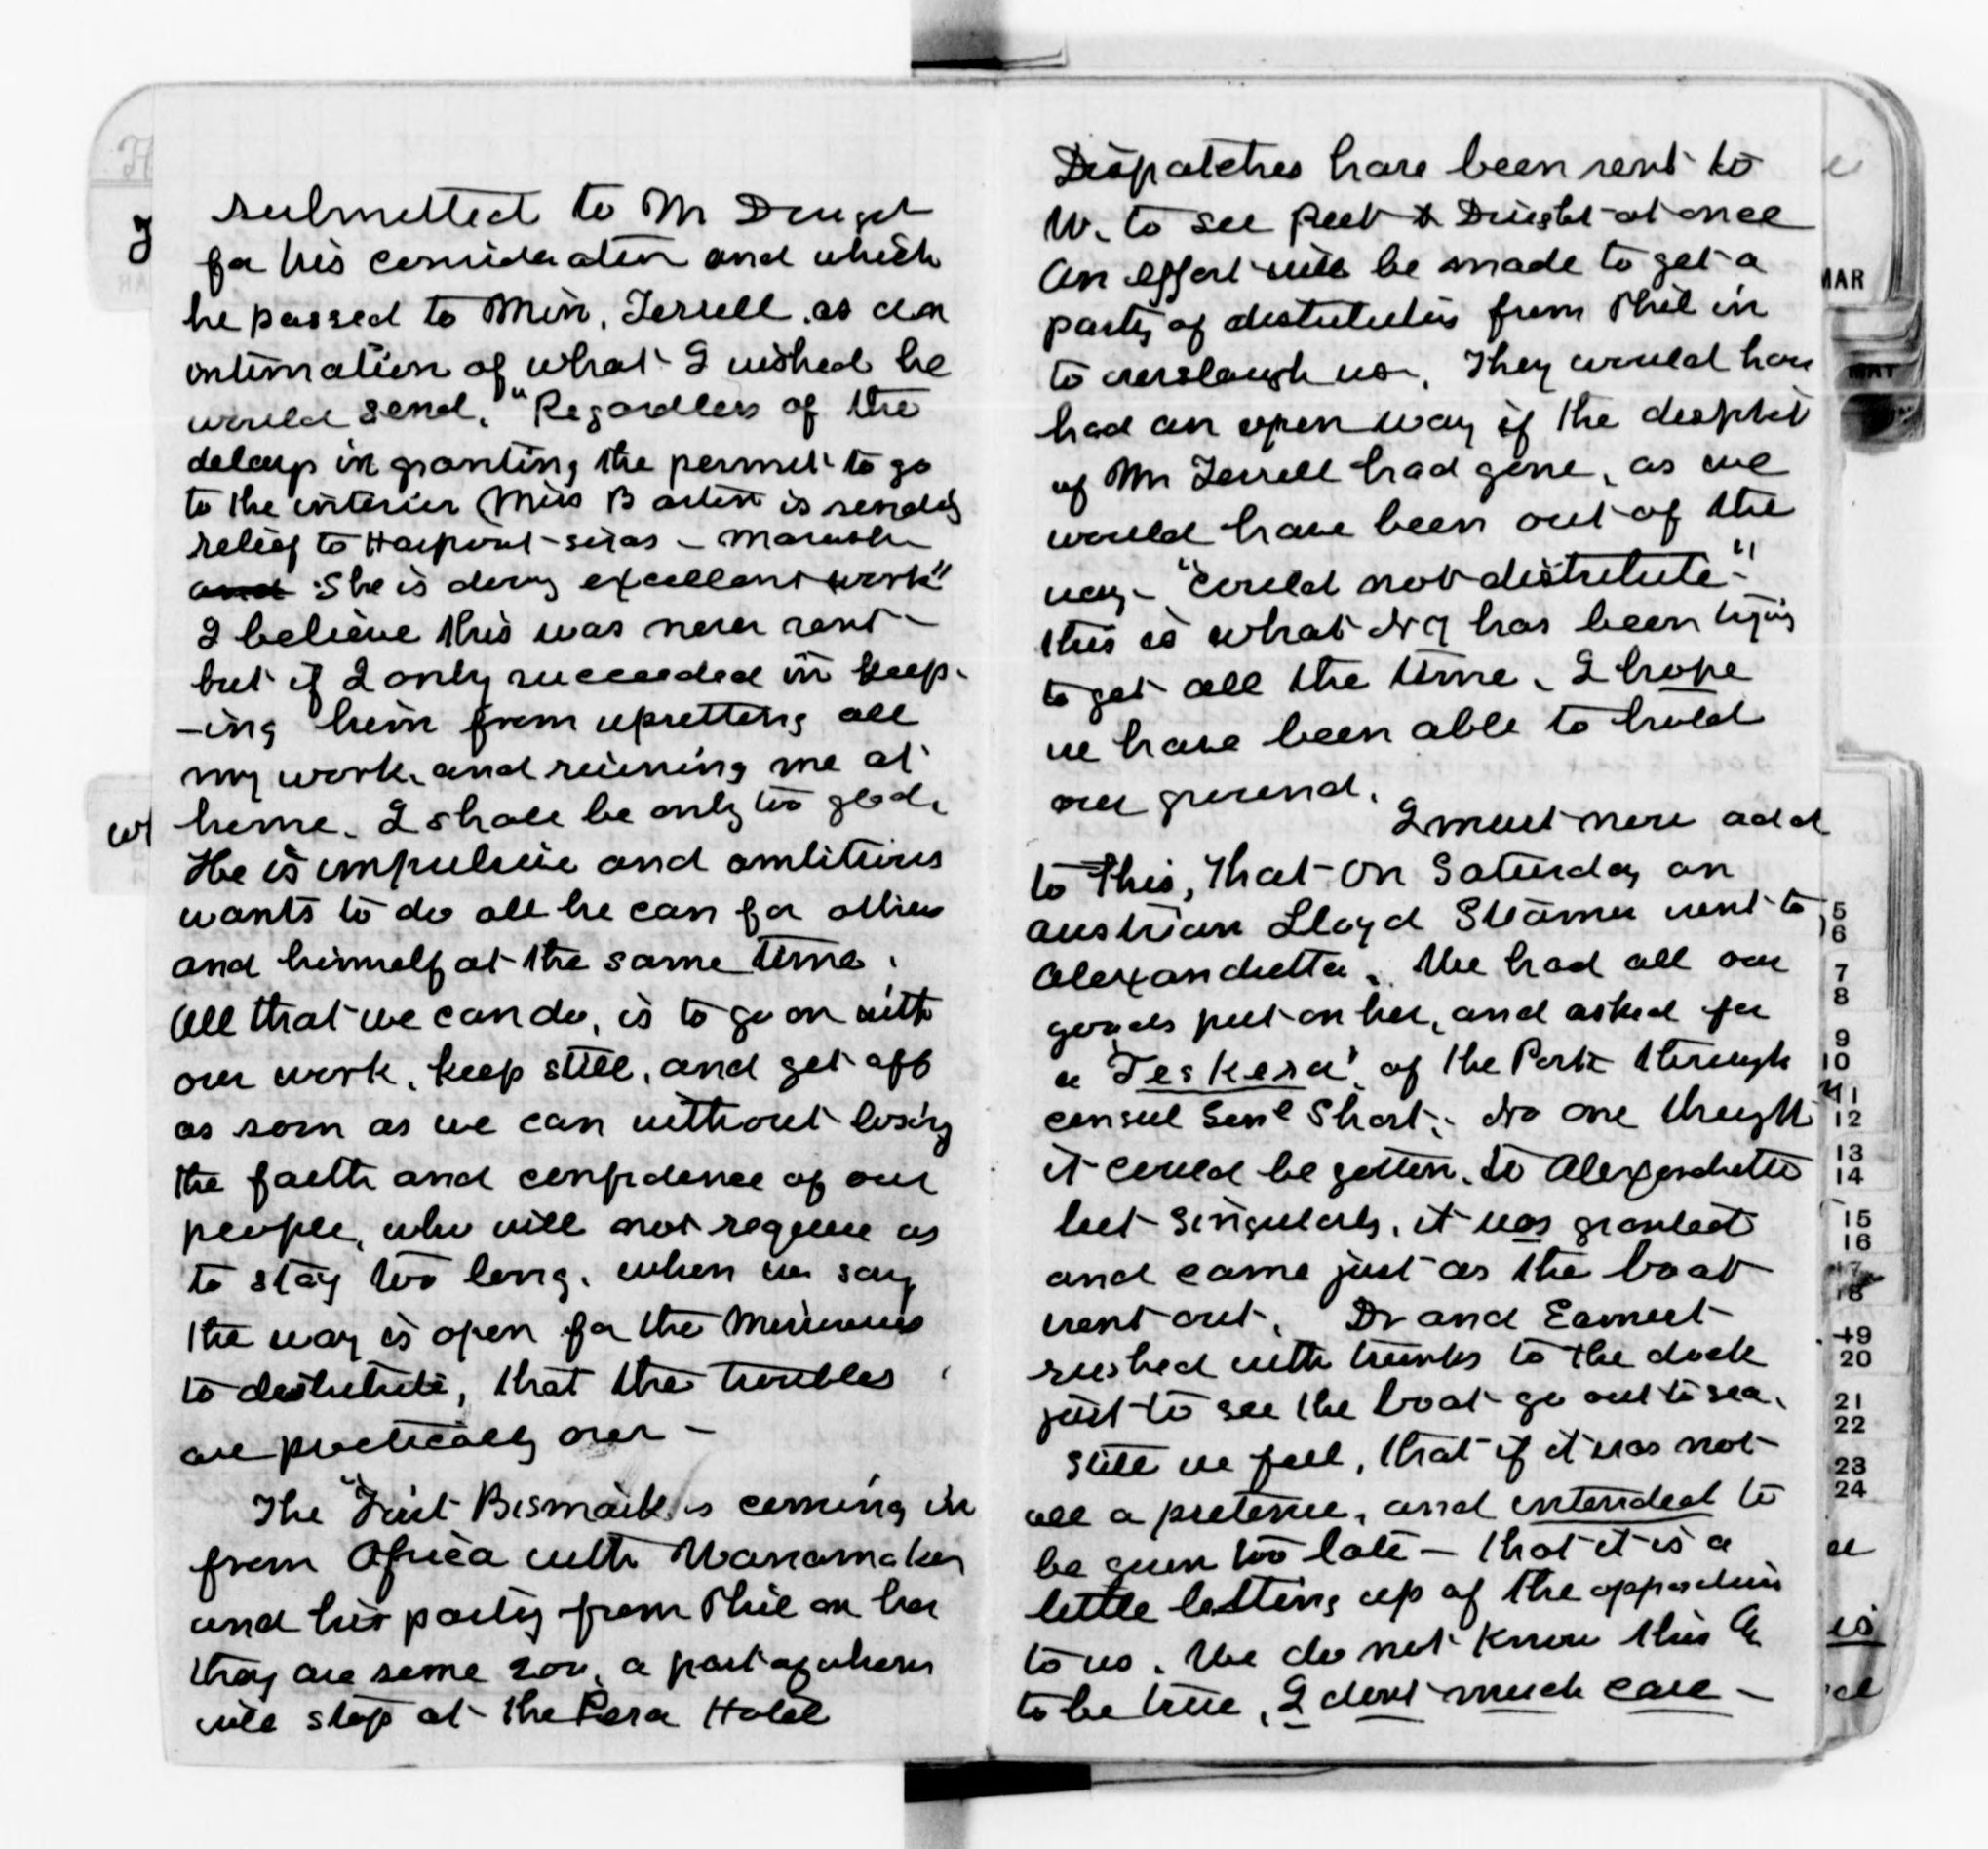 submitted to Mr Dwight
for his consideration and which
he passed to Min. Terrell, as an
intimation of what I wished he
would send. "Regardless of the
delays in granting the permit to go
to the interior Miss Barton is sending
relief to Harpoot - sivas - Marash
and She is doing excellent work"
I believe this was never sent -
but if I only succeeded in keep-
-ing him from upsetting all
my work, and ruining me at
home. I shall be only too glad.
He is impulsive and ambitious
wants to do all he can for others
and himself at the same time.
All that we can do, is to go on with
our work, keep still, and get off
as soon as we can without losing
the faith and confidence of our
people, who will not require us
to stay too long, when we say
the way is open for the Missionaries
to distribute, that the troubles
are practically over -
The "Furst Bismark is coming in
from Africa with Wanamaker
and his party from Phil on her
they are some 200, a part of whom
will stop at the Pera Hotel
Dispatches have been sent to
W. to see Peet & Dwight at once
An effort will be made to get a
party of distributers from Phil in
to overslaugh us. They would have
had an open way if the dispatch
of Mr Terrell had gone, as we
would have been out of the
way - "could not distribute"
this is what N Y has been trying
to get all the time. I hope
we have been able to hold
our ground.
I must now add
to this, that on Saturday an
austrian Lloyd Steamer went to
Alexandretta. We had all our
goods put on her, and asked for
a Teskera' of the Porte through
consul Genl Short; No one thought
it could be gotten, to Alexandretta
but singularly, it was granted
and came just as the boat
went out. Dr and Earnest
rushed with trunks to the dock
just to see the boat go out to sea.
Still we feel, that if it was not
all a pretense, and intended to
be given too late - that it is a
little letting up of the opposition
to us. We do not know this
to be true, I dont much care -
MAR
MAY
5
6
7
8
9
10
11
12
13
14
15
16
17
18
19
20
21
22
23
24
is